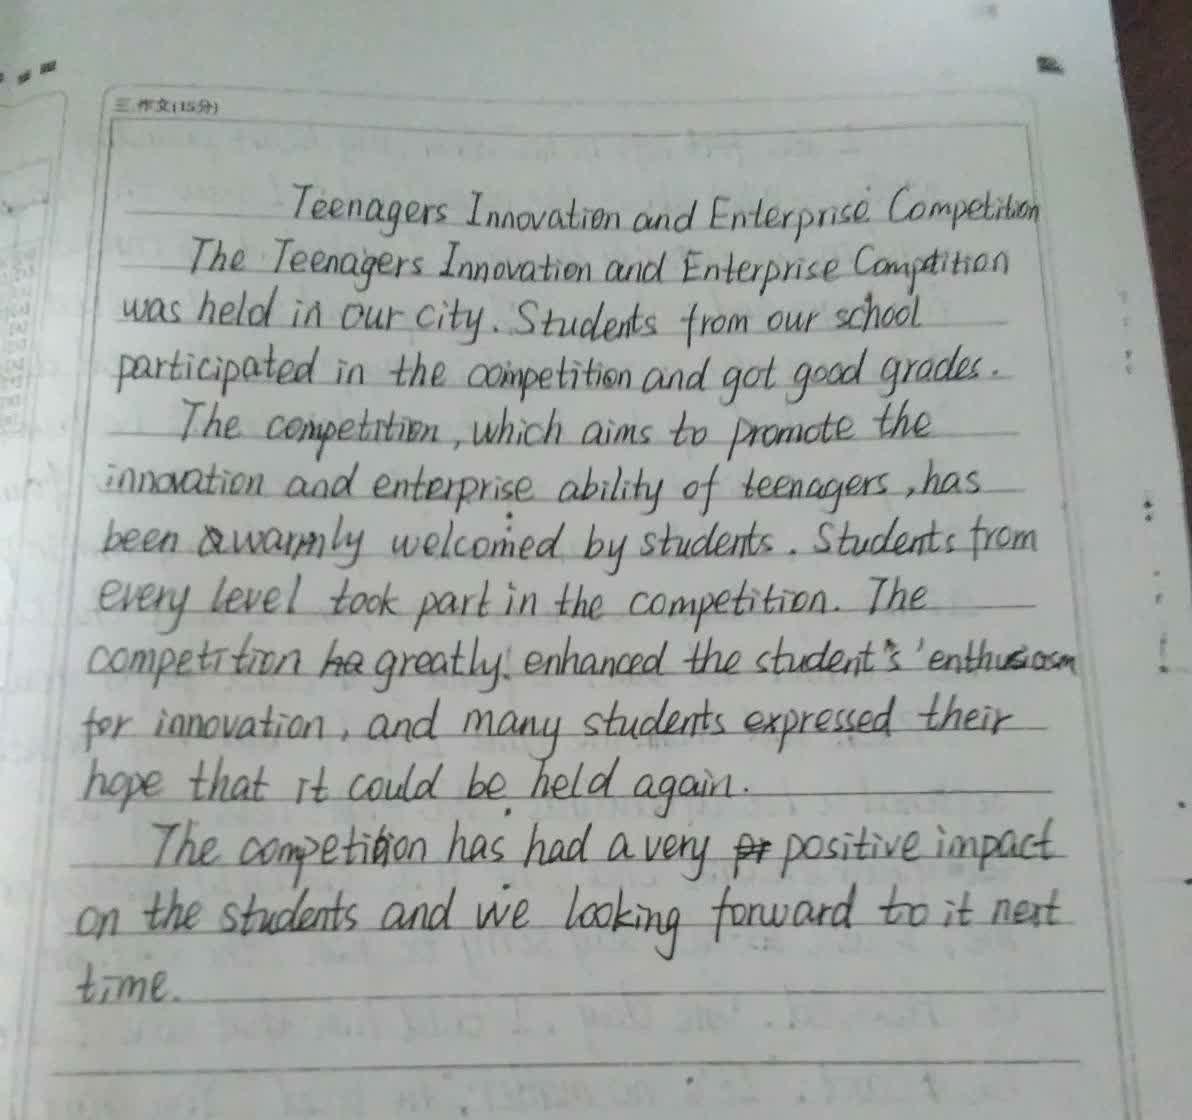 三.作文(15分)
Teenagers Innovation and Enterprise Competition
The Teenagers Innovation and Enterprise Competition
was held in our city. Students from our school
participated in the competition and got good grades.
The competition, which aims to promote the
innovation and enterprise ability of teenagers, has
been warmly welcomed by students. Students from
every level took part in the competition. The
competition greatly enhanced the student's' enthusiasm
for innovation, and many students expressed their
hope that it could be held again.
The competition has had a very positive impact
on the students and we looking forward to it next
time.